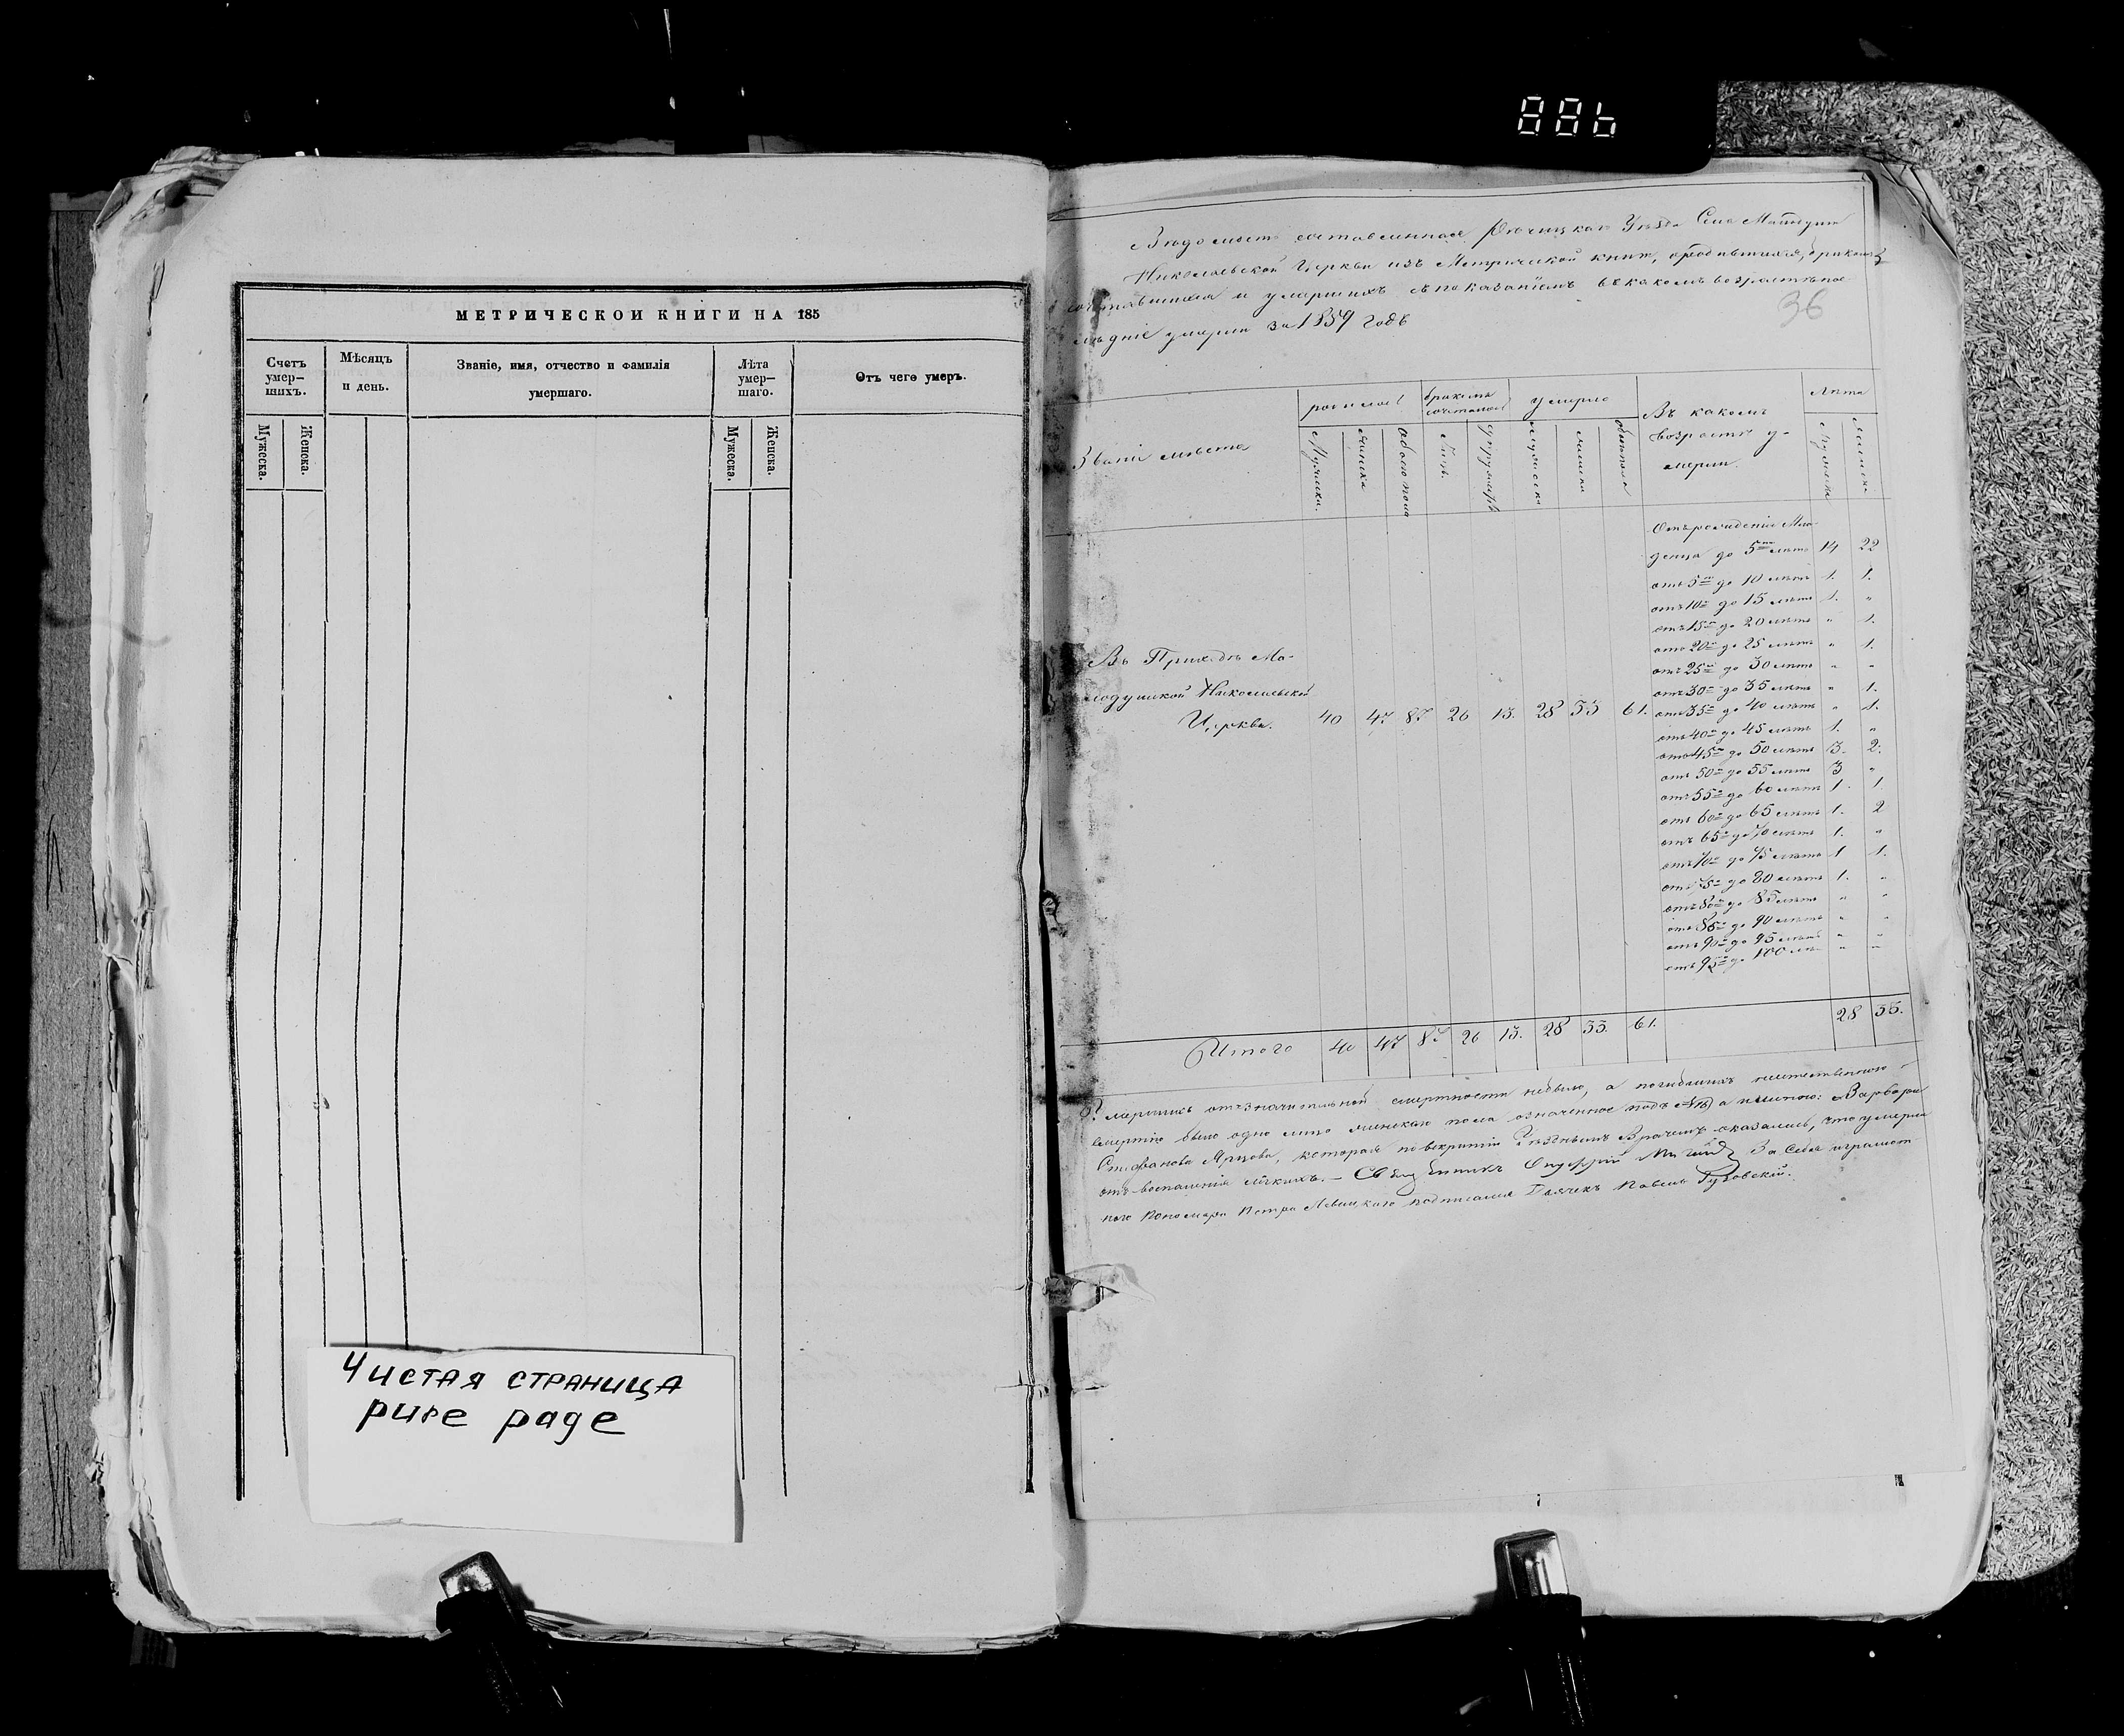 886
МЕТРИЧЕСКОЙ КНИГИ НА 185
Счетъ умер-
шихъ.
Мѣсяцъ
и день.
Званіе, имя, отчество и фамилія
умершаго.
Лѣта
умер-
шаго.
Отъ чего умеръ.
Мужеска.
Женска.
Мужеска.
Женска.
Чистая страница
pure page
Вѣдомость составленная Рѣчицкаго Уѣзда Села
Николаевской Церкви изъ Метрической книги, о родившихся, бракомъ
сочетавшихся и умершихъ съ показаніемъ въ какомъ возрастѣ
умерли за 1859 годъ
36
Званіе мѣста
родилось
бракомъ
сочеталось
умерло
Въ какомъ
возрастѣ у-
мерли.
Лѣта
Мужеска.
женска
обоего пола
Лицъ.
супружествъ
мужеска
женска
обоего пола
Мужеска
Женска
Отъ рожденія Мла-
денца до 5 лѣтъ 14 22
отъ 5 до 10 лѣтъ 1. 1.
отъ 10 до 15 лѣтъ 1. "
отъ 15 до 20 лѣтъ " 1.
отъ 20 до 25 лѣтъ " 1.
отъ 25 до 30 лѣтъ " "
отъ 30 до 35 лѣтъ " 1.
отъ 35 до 40 лѣтъ " 1.
отъ 40 до 45 лѣтъ 1. "
отъ 45 до 50 лѣтъ 3. 2.
отъ 50 до 55 лѣтъ 3 "
отъ 55 до 60 лѣтъ 1. 1
отъ 60 до 65 лѣтъ 1. 2
отъ 65 до 70 лѣтъ 1. "
отъ 70 до 75 лѣтъ 1 1.
отъ 75 до 80 лѣтъ 1. "
отъ 80 до 85 лѣтъ " "
отъ 85 до 90 лѣтъ " "
отъ 90 до 95 лѣтъ " "
отъ 95 до 100 лѣ " "
Въ Приходѣ Мо-
лодушской Николаевской
Церкви. 40 47 87 26 13. 28 33 61.
Итого 40 47 87 26 13. 28 33. 61. 28 33.
Умершихъ отъ значительной смертности небыло, а погибшихъ
смертію было одно лицо женскаго пола означенное подъ а именно: Варвара
Стефанова которая по вскрытіи Уѣзднымъ Врачемъ оказалось, что умерла
отъ воспаленія легкихъ. – Священникъ За себя и неграмот
наго Пономаря Петра Левицкаго подписался Дьячекъ Павелъ